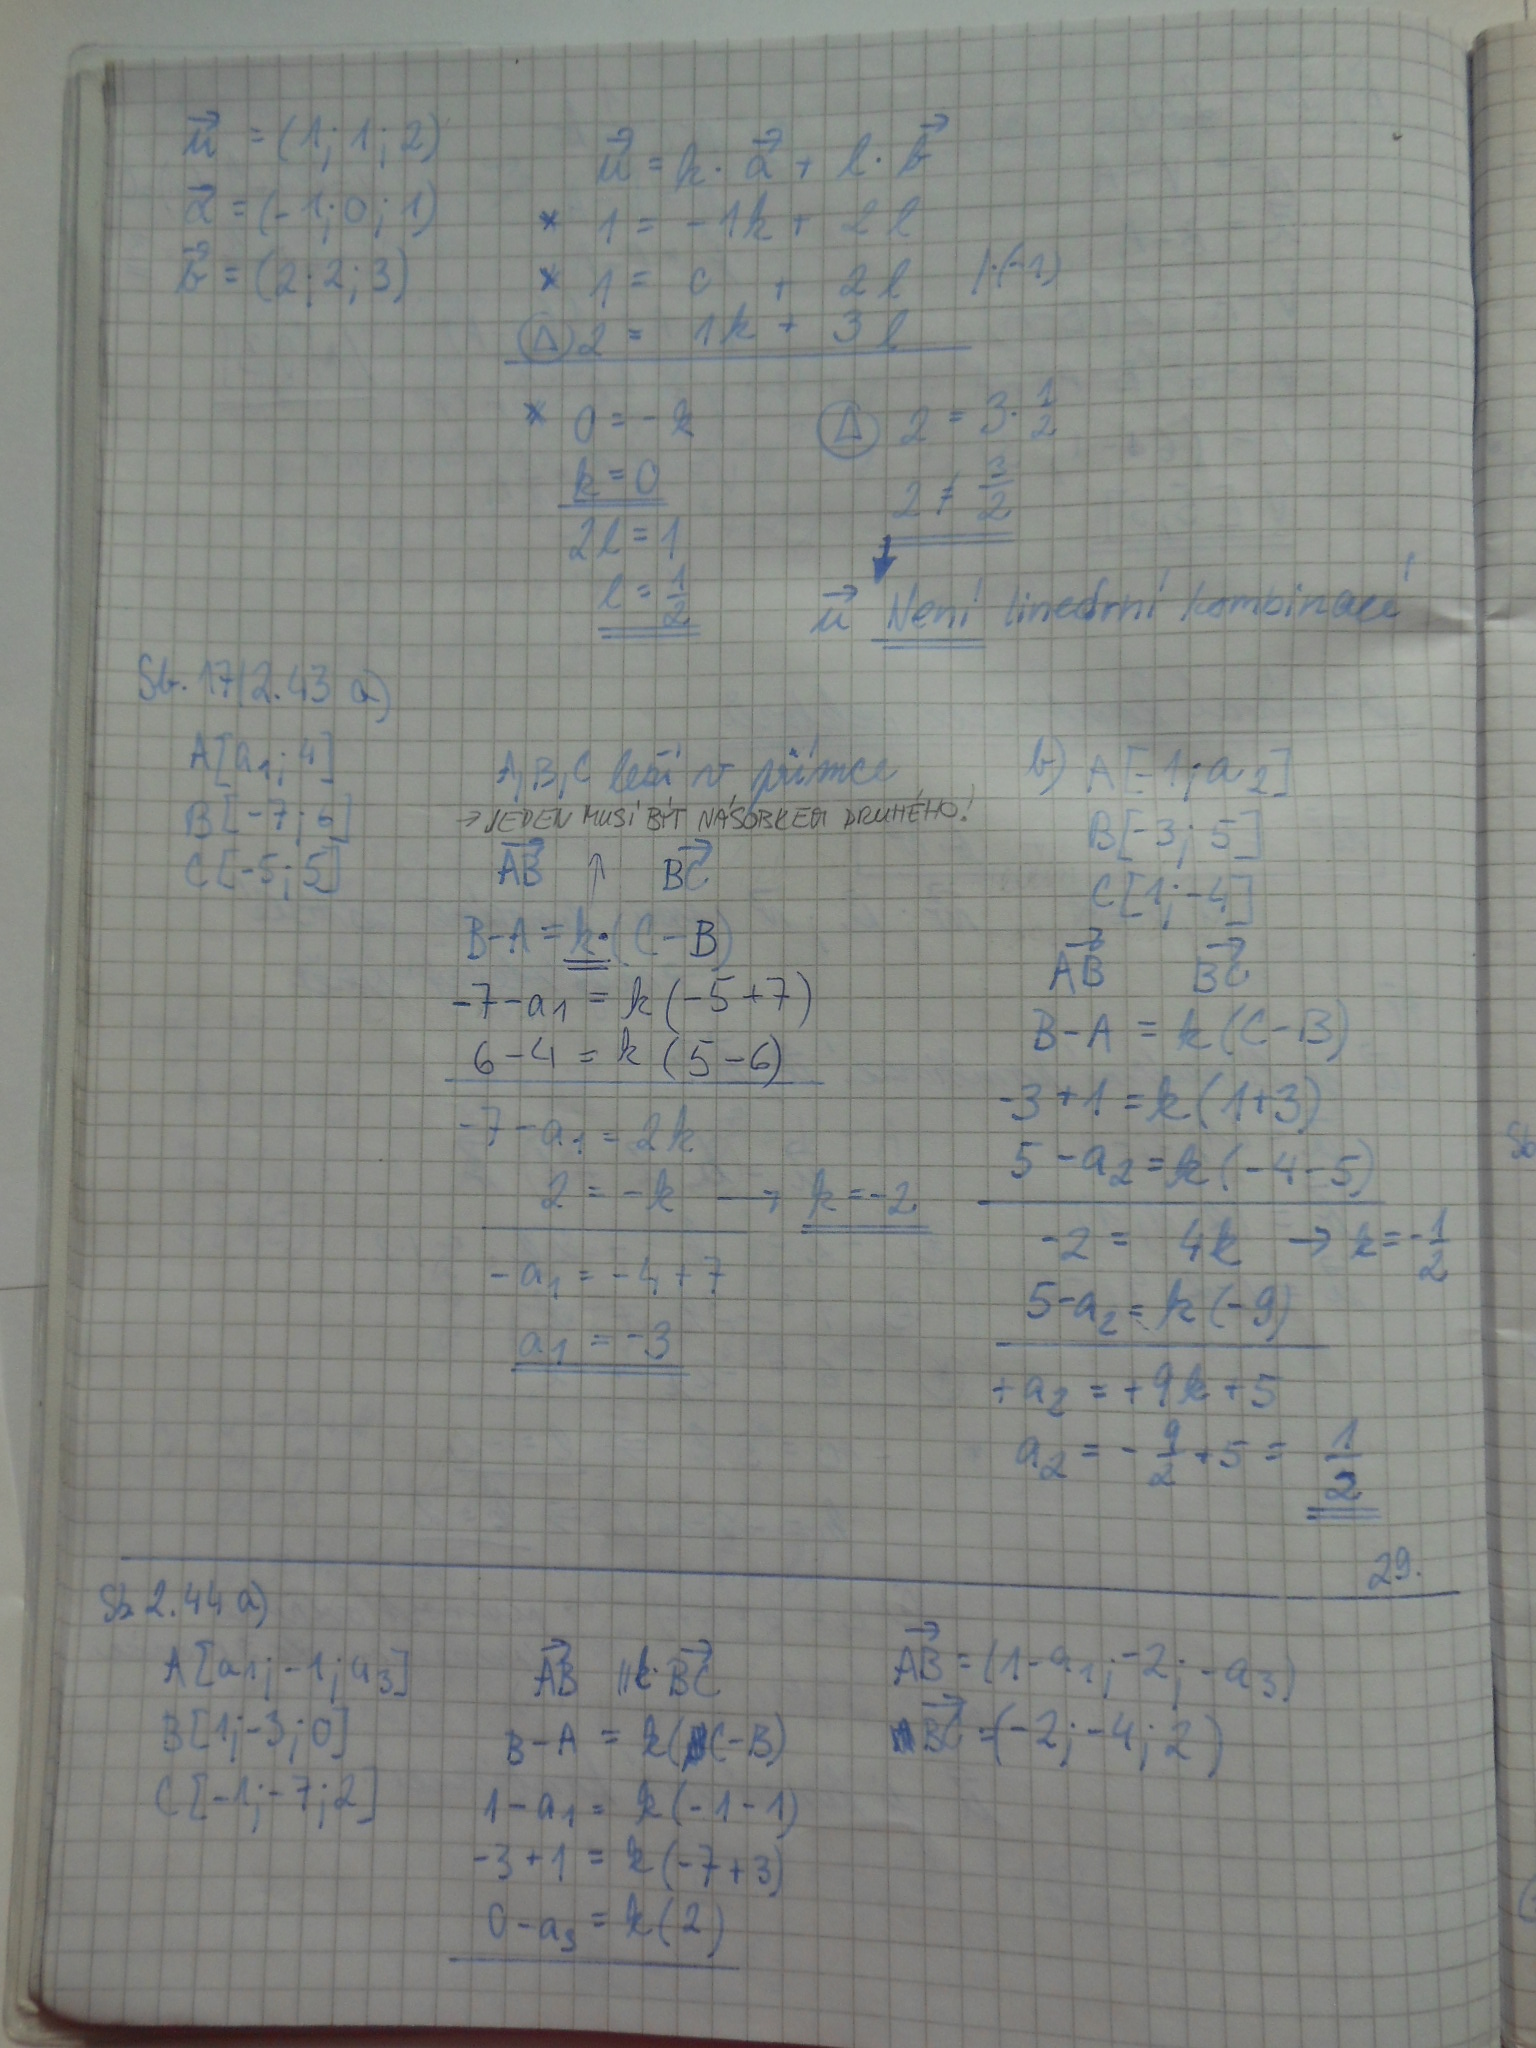 u⃗ = (1; 1; 2)
a⃗ = (-1; 0; 1)
b⃗ = (2; 2; 3)
u⃗ = k · a⃗ + l · b⃗
* 1 = -1k + 2l
* 1 = 0 + 2l /·(-1)
Δ 2 = 1k + 3l
* 0 = -k
k = 0
2l = 1
l = 1/2
Δ 2 = 3 · 1/2
2 ≠ 3/2
u⃗ Není lineární kombinací
Sb. 17/2.43 a)
A[a₁; 4]
B[-7; 6]
C[-5; 5]
A, B, C leží v přímce
→ JEDEN MUSÍ BÝT NÁSOBKEM DRUHÉHO!
AB⃗ ↑ BC⃗
B-A = k·(C-B)
-7-a₁ = k(-5+7)
6-4 = k(5-6)
-7-a₁ = 2k
2 = -k → k = -2
-a₁ = -4+7
a₁ = -3
b) A[-1; a₂]
B[-3; 5]
C[1; -4]
AB⃗ BC⃗
B-A = k(C-B)
-3+1 = k(1+3)
5-a₂ = k(-4-5)
-2 = 4k → k = -1/2
5-a₂ = k(-9)
+a₂ = +9k+5
a₂ = -9/2+5 = 1/2
29.
Sb 2.44 a)
A[a₁; -1; a₃]
B[1; -3; 0]
C[-1; -7; 2]
AB⃗ ∥ k·BC⃗
B-A = k(C-B)
1-a₁ = k(-1-1)
-3+1 = k(-7+3)
0-a₃ = k(2)
AB⃗ = (1-a₁; -2; -a₃)
BC⃗ = (-2; -4; 2)
Sb